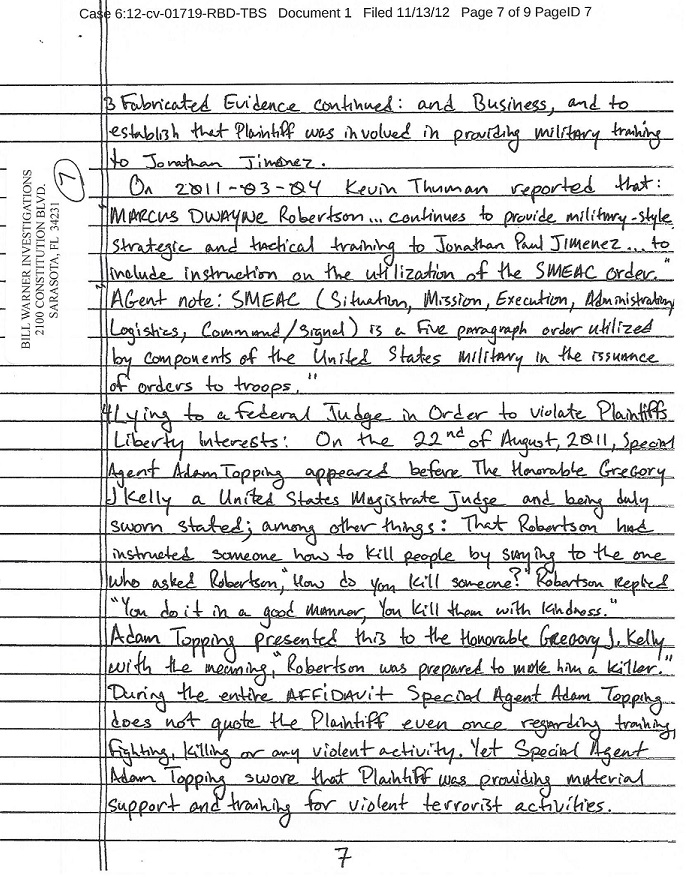 Case 6:12-cv-01719-RBD-TBS Document 1 Filed 11/13/12 Page 7 of 9 PageID 7
BILL WARNER INVESTIGATIONS
2100 CONSTITUTION BLVD.
SARASOTA, FL 34231
7
3 Fabricated Evidence continued: and Business, and to
establish that Plaintiff was involved in providing military training
to Jonathan Jimenez.
On 2011-03-04 Kevin Thuman reported that:
"MARCUS DWAYNE Robertson... continues to provide military-style,
strategic and tactical training to Jonathan Paul Jimenez... to
include instruction on the utilization of the SMEAC order."
"AGent note: SMEAC (Situation, Mission, Execution, Administration,
Logistics, Command/Signal) is a Five paragraph order utilized
by components of the United States military in the issuance
of orders to troops."
4 Lying to a Federal Judge in Order to violate Plaintiffs
Liberty Interests: On the 22nd of August, 2011, Special
Agent Adam Topping appeared before The Honorable Gregory
J Kelly a United States Magistrate Judge and being duly
sworn stated; among other things: That Robertson had
instructed someone how to kill people by saying to the one
who asked Robertson, "How do you kill someone?" Robertson replied
"You do it in a good manner, You kill them with kindness."
Adam Topping presented this to the Honorable Gregory J. Kelly
with the meaning, "Robertson was prepared to make him a killer."
During the entire AFFiDAVit Special Agent Adam Topping
does not quote the Plaintiff even once regarding training,
fighting, killing or any violent activity. Yet Special Agent
Adam Topping swore that Plaintiff was providing material
support and training for violent terrorist activities.
7